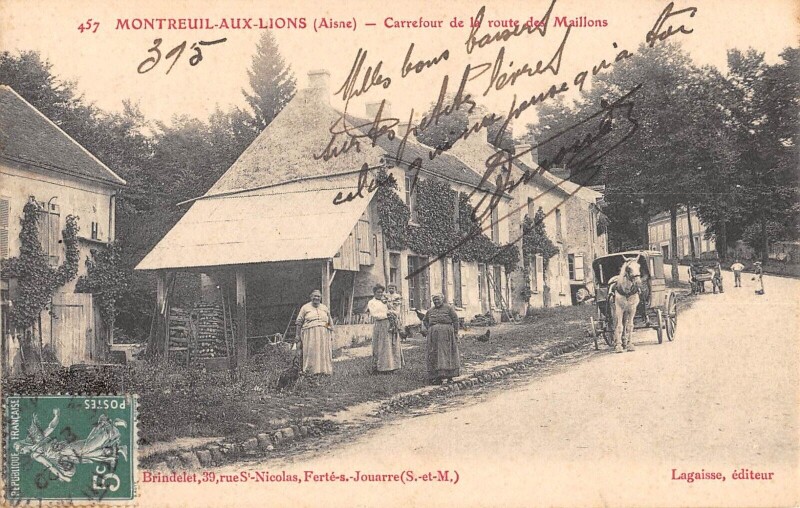 457 MONTREUIL-AUX-LIONS (Aisne) — Carrefour de la route des Maillons
315
Milles bons baisers
sur tes petites lèvres
celui qui ne pense qu'à toi
POSTES
REPUBLIQUE FRANÇAISE
5c
Brindelet, 39, rue St-Nicolas, Ferté-s.-Jouarre (S.-et-M.)
Lagaisse, éditeur